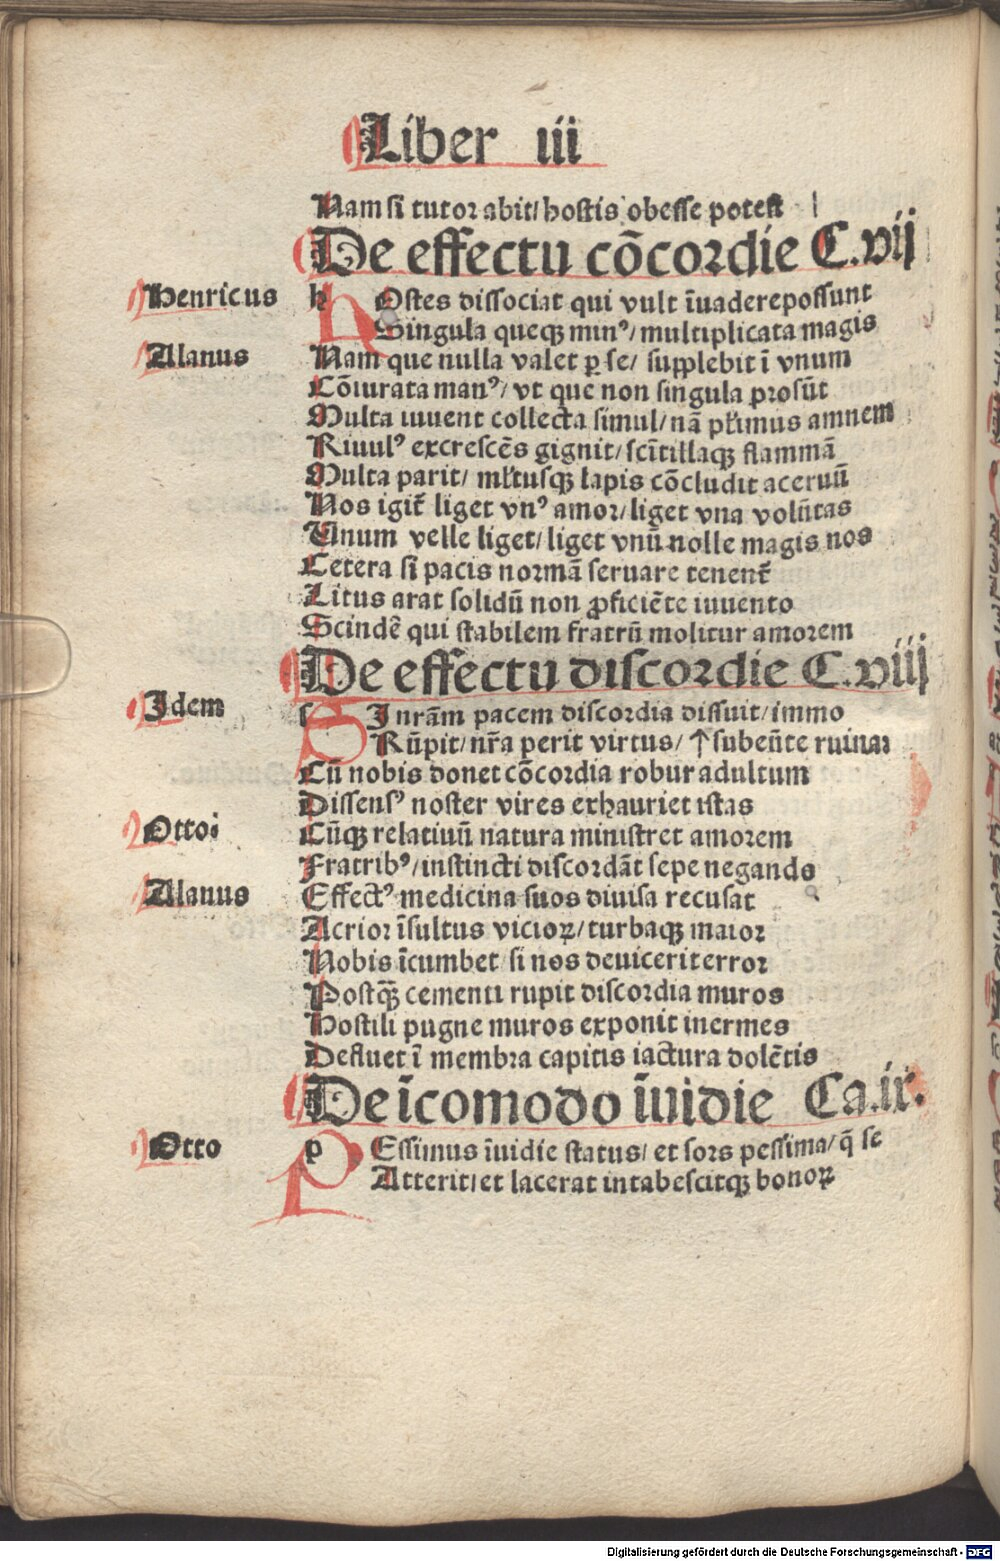 Liber iii
Nam si tutor abit/ hostis obesse potest
De effectu cōcordie C.vij
Henricus
hOstes dissociat qui vult īuadere possunt
Singula queqꝫ minꝰ/ multiplicata magis
Alanus
Nam que nulla valet ꝑ se/ supplebit ī vnum
Cōiurata manꝰ/ vt que non singula prosūt
Multa iuuent collecta simul/ nā pl̄imus amnem
Riuulꝰ excrescēs gignit/ scītillaqꝫ flammā
Multa parit/ ml̄tusqꝫ lapis cōcludit aceruū
Nos igit̄ liget vnꝰ amor/ liget vna volūtas
Unum velle liget/ liget vnū nolle magis nos
Cetera si pacis normā seruare tenent̄
Litus arat solidū non ꝓficiēte iuuento
Scindē qui stabilem fratrū molitur amorem
De effectu discordie C.viij
Idem
sI nrām pacem discordia dissuit/ immo
Rūpit/ nr̄a perit virtus/ ↑ subeūte ruinaɪ
Cū nobis donet cōcordia robur adultum
Dissensꝰ noster vires exhauriet istas
Ottoi
Cūqꝫ relatiuū natura ministret amorem
Fratribꝰ/ instincti discordāt sepe negando
Alanus
Effectꝰ medicina suos diuisa recusat
Acrior īsultus vicioꝝ/ turbaqꝫ maior
Nobis īcumbet si nos deuicerit error
Postqꝫ̄ cementi rupit discordia muros
Hostili pugne muros exponit inermes
Defluet ī membra capitis iactura dolētis
De īcomodo īuidie Ca.ix.
Otto
pEssimus īuidie status/ et sors pessima/ q̄ se
Atterit/ et lacerat intabescitqꝫ bonoꝝ
Digitalisierung gefördert durch die Deutsche Forschungsgemeinschaft - DFG